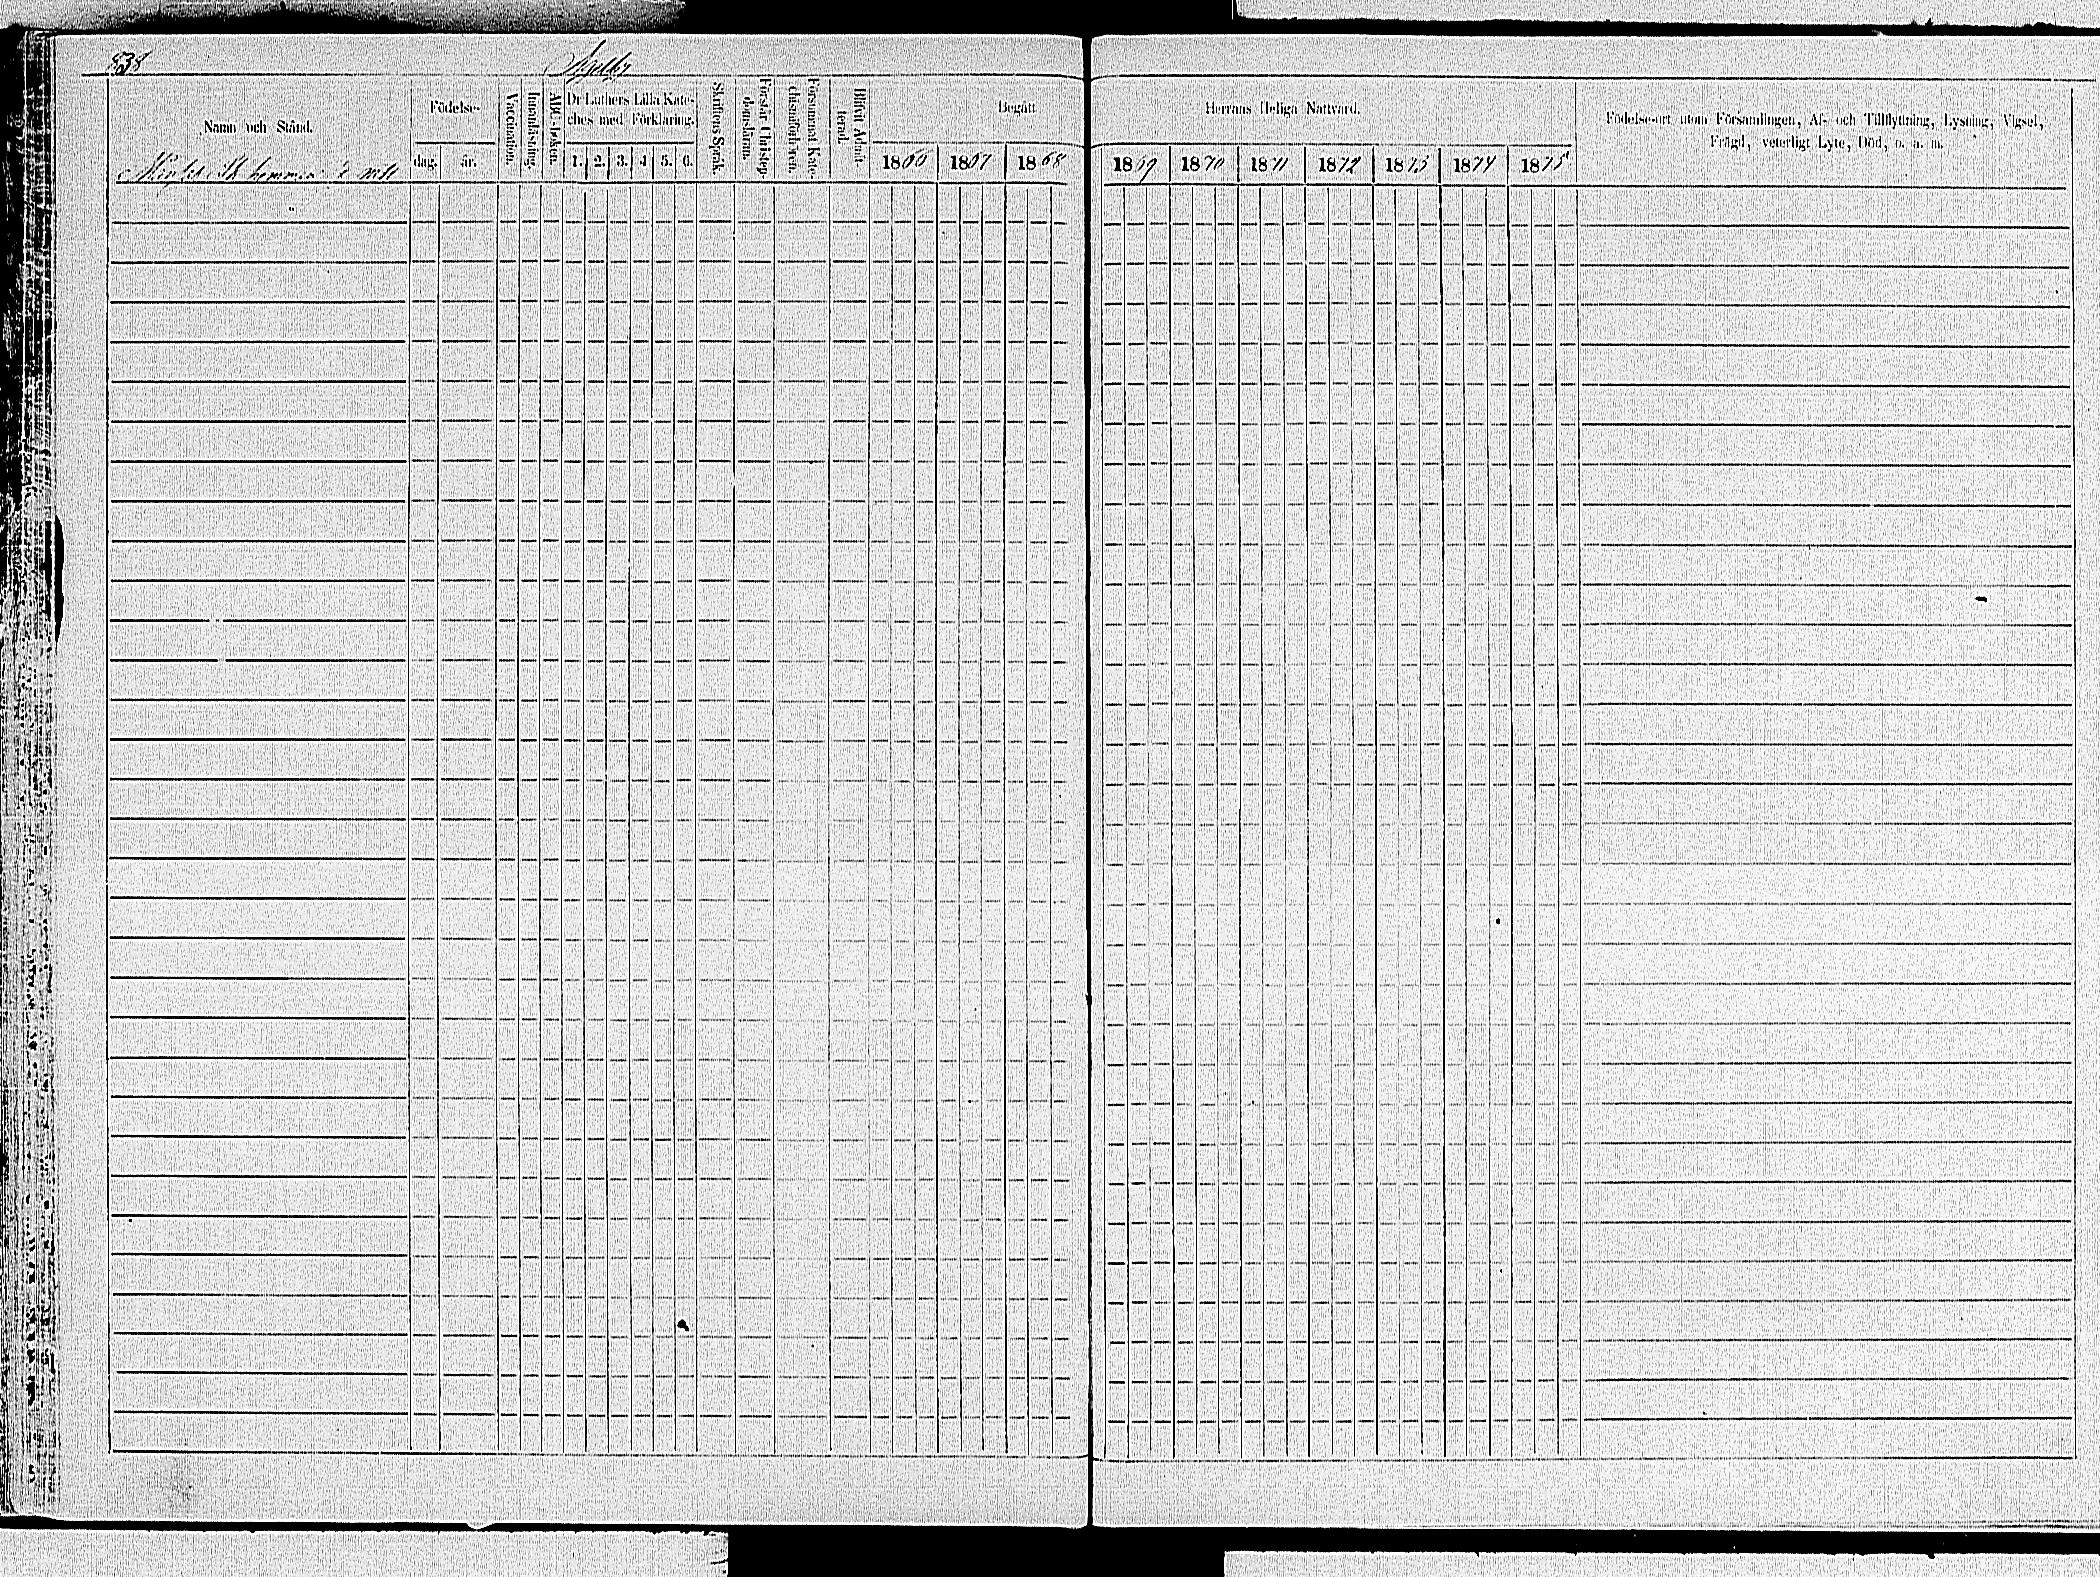 838
Födelse-
Dr Luthers Lilla Kate-
ches med Förklaring.
Namn och Stånd.
dag.
år.
Vaccination.
Innanläsning.
ABC-boken.
1. 2. 3. 4 5. 6.
Skriftens Språk.
Förstår Christen-
domslären.
Försummat Kate-
chismiförhören.
Blifvit Admit-
terad.
Begått
1866 1867 1868
hemman
Herrans Heliga Nattvard.
1869 1870 1871 1872 1873 1874 1875
Födelse-ort utom Församlingen, Af- och Tillflyttning, Lysning, Vigsel,
Frägd, veterligt Lyte, Död, o. a. m.